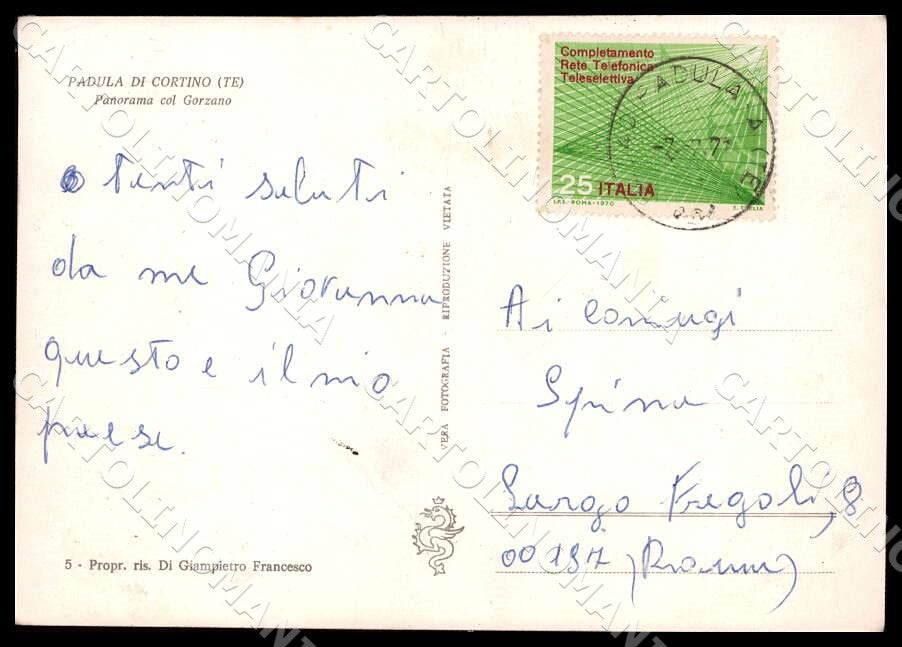 PADULA DI CORTINO (TE)
Panorama col Gorzano
Tanti saluti
da me Giovanna
questo e il mio
paese.
5 - Propr. ris. Di Giampietro Francesco
VERA FOTOGRAFIA - RIPRODUZIONE VIETATA
Completamento
Rete Telefonica
Teleselettiva
25 ITALIA
I.P.S. - ROMA - 1970
PADULA
Ai coniugi
Spina
Largo Fregoli, 8
00197 (Roma)
CARTOLINOMANIA